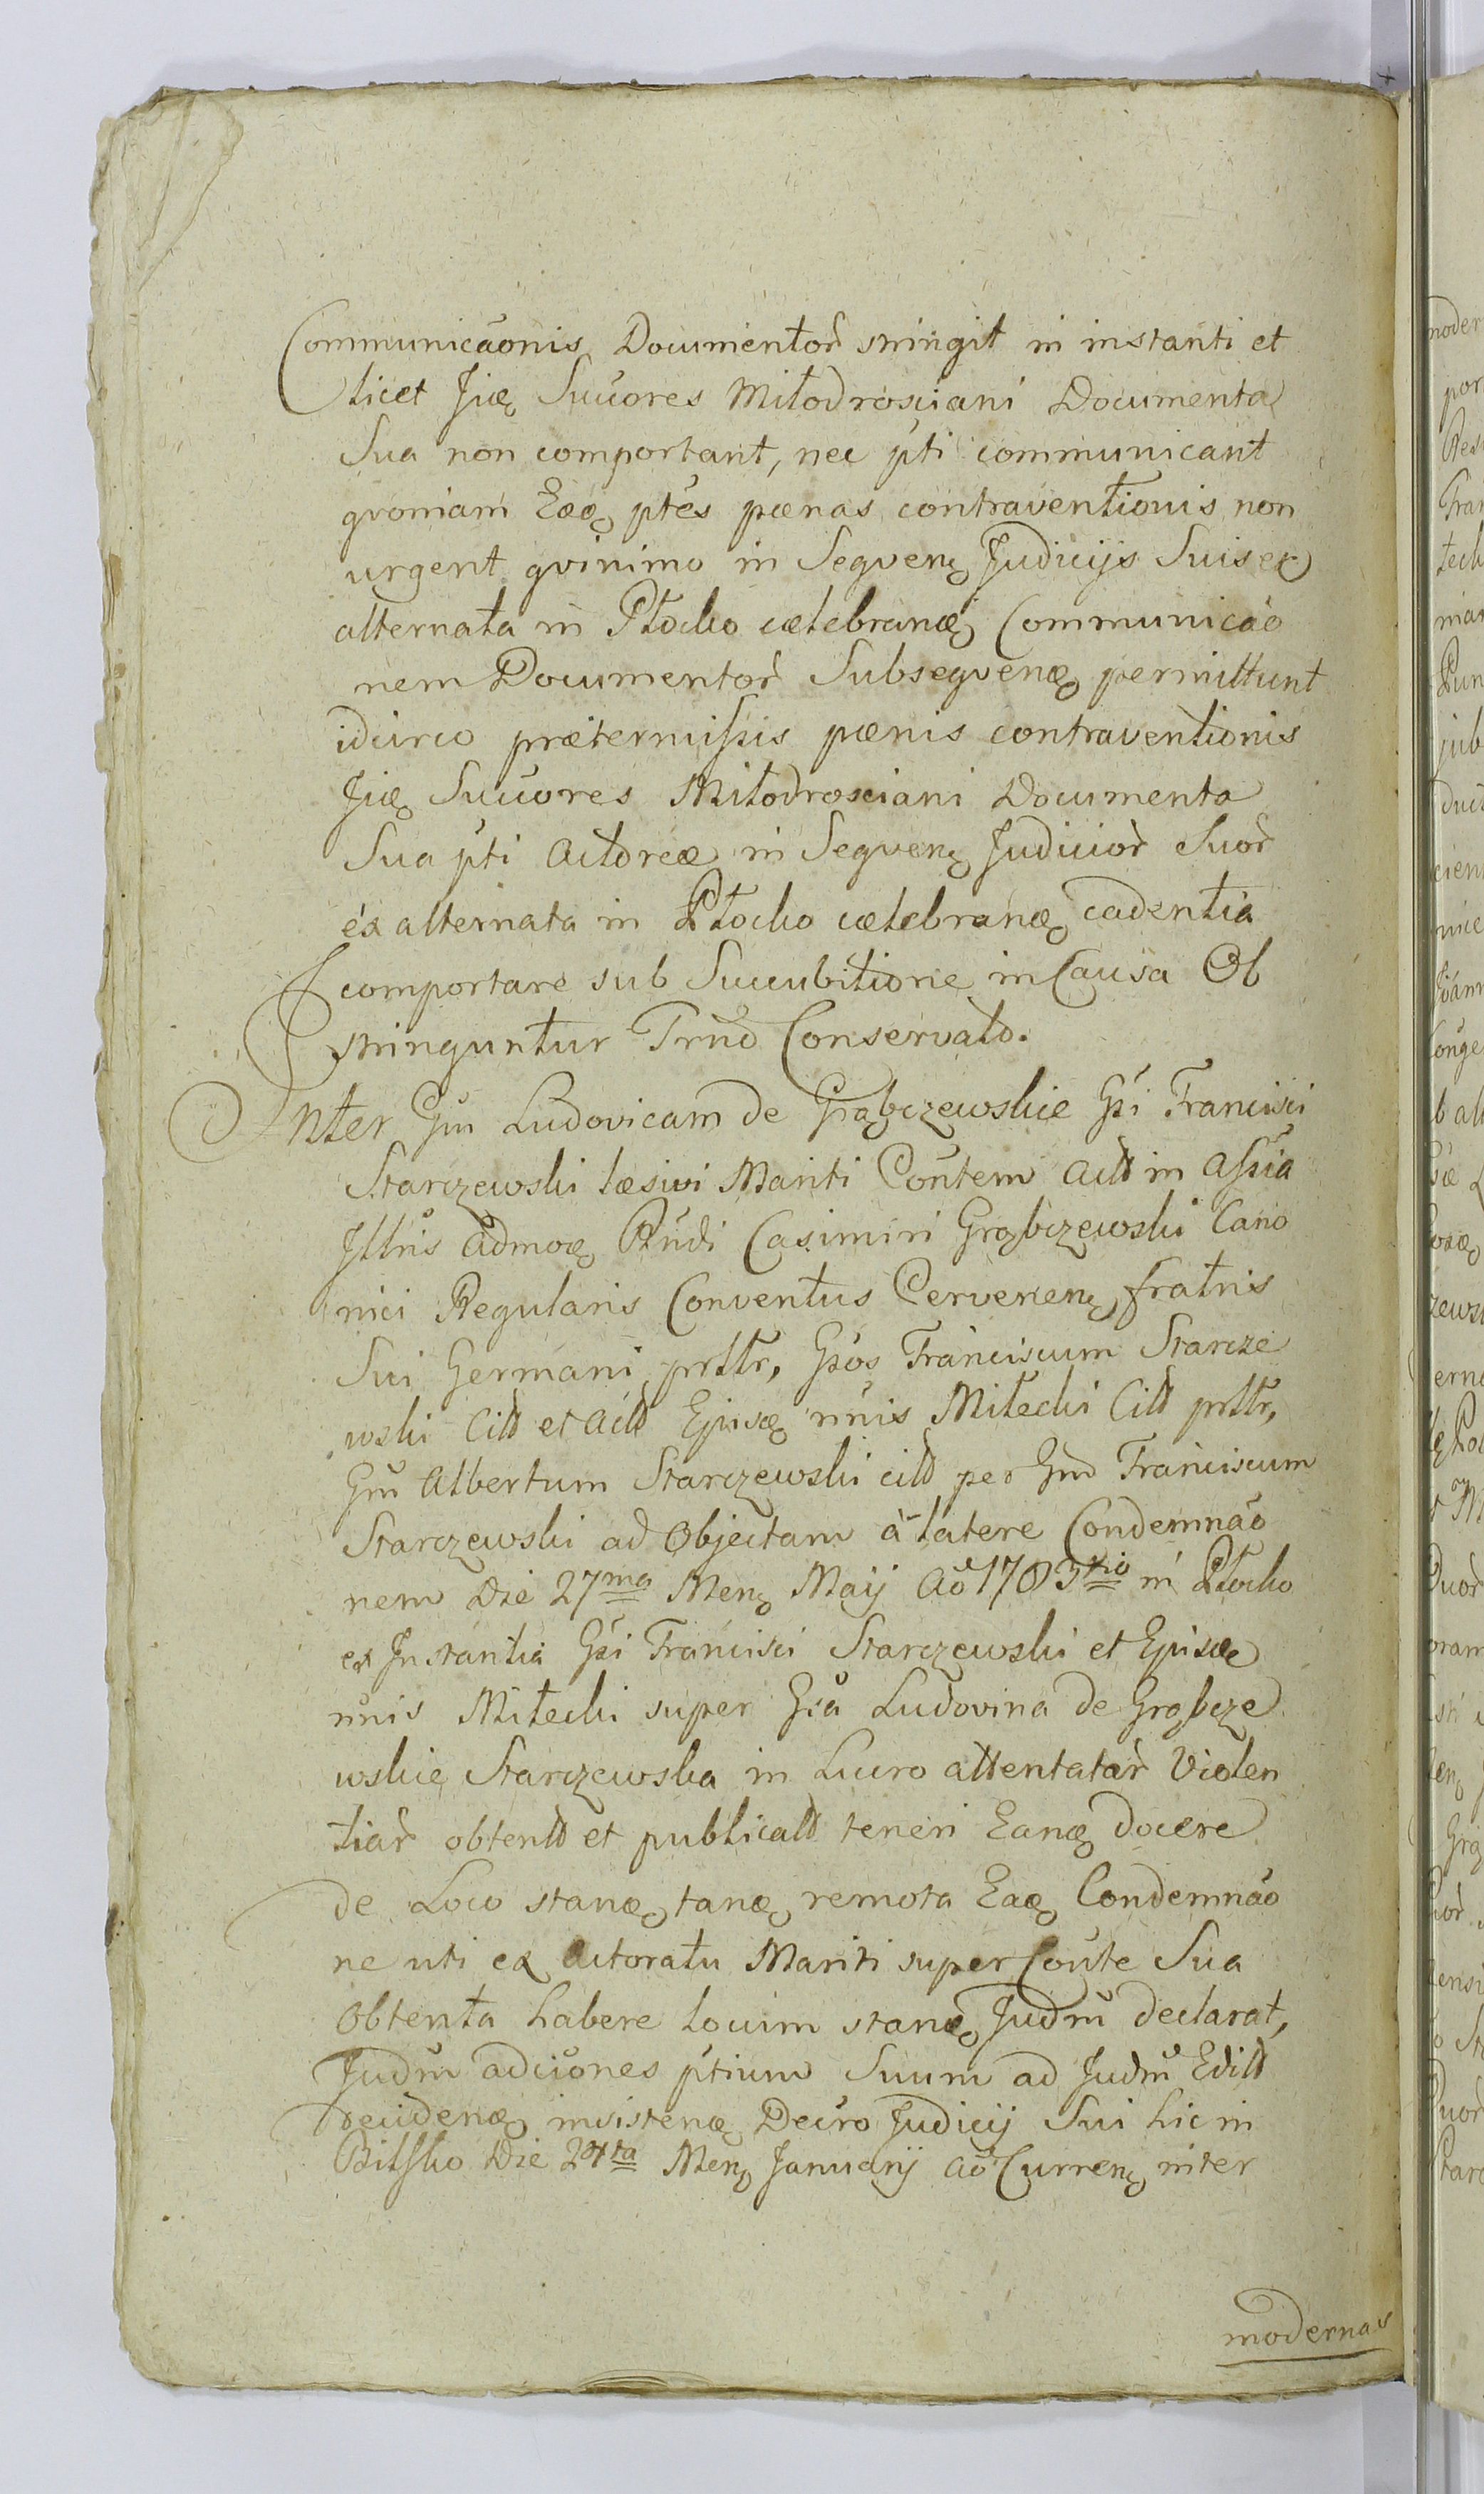 Communicãonis Documentor̃ stringit in instanti et
licet Jidę Succõres Miłodrosciani Documenta
Sua non comportant, nec pti communicant
qvoniam Eædę ptes pœnas contraventionis non
urgent qvinimo in Seqvenę Judicijs Suis ex
alternata in Płocko cælebranæ Communicão
nem Documentor̃ Subseqvenæ permittunt
idcirco prætermissis pœnis contraventionis
Jidę Succõres Miłodrosciani Documenta
Sua pti Actoreæ in Seqvenę Judicior̃ Suor̃
ex alternata in Płocko cælebranæ cadentia
comportare sub Succubitione in Causa Ob
stringuntur Trnõ Conservato.
Inter Gm̃ Ludovicam de Grąbczewskie Gsi Francisci
Starczewski læsivi Mariti Cõntem Actt in Assia
Jlltris Admoę Rñdi Casimiri Grąbczewski Cano
nici Regularis Conventus Cervenenę fratris
Sui Germani prttr, Gsõs Franciscum Starcze
wski Citt et Actt Episcæ nnis Miłecki Citt prttr,
Gm̃ Albertum Starczewski citt per Gm̃ Franciscum
Starczewski ad Objectam à latere Condemnão
nem Die 27ma Menę Maij Aõ 1783tio in Płocko
ex Jnstantia Gsi Francisci Starczewski et Episcæ
nnis Miłecki super Gsã Ludovina de Grąbcze
wskie Starczewska in Lucro attentatar̃ Violen
tiar̃ obtentt et publicatt teneri Eandę docere
de Loco standę, tandę remota Eadę Condemnão
ne uti ex Actoratu Mariti super Cõnte Sua
obtenta habere locum standę Judm̃ declarat,
Judm̃ adcõnes ptium Suum ad Judm̃ Editt
recidenæ insistenæ Decro Judicij Sui hic in
Bilsko Die 24ta Menę Januarij Aõ Currenę inter
modernas